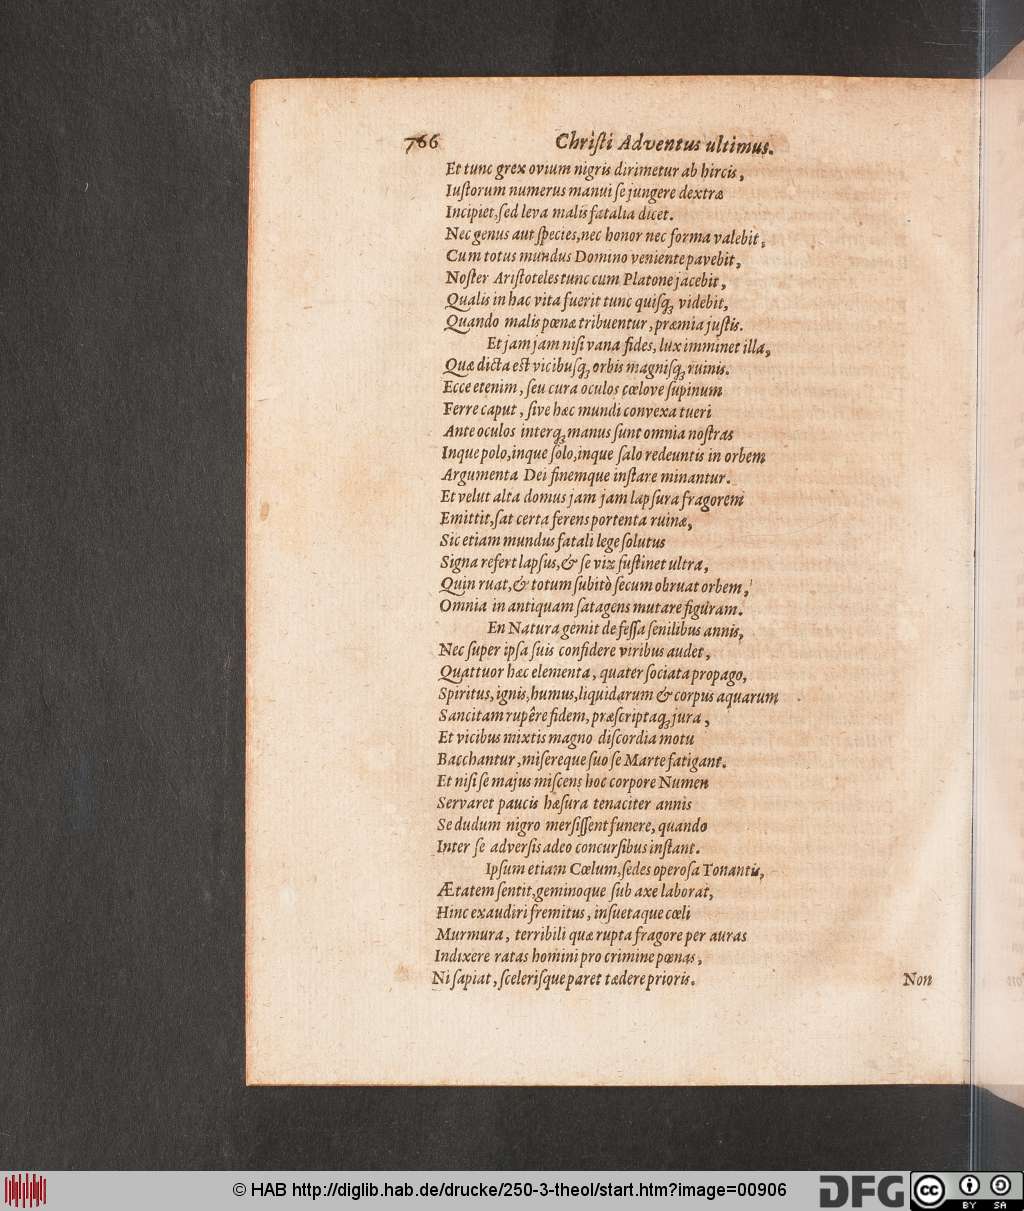 766 Christi Adventus ultimus.
Et tunc grex ovium nigris dirimetur ab hircis,
Iuſtorum numerus manui ſe jungere dextræ
Incipiet, ſed leva malis fatalia dicet.
Nec genus aut ſpecies, nec honor nec forma valebit,
Cum totus mundus Domino veniente pavebit,
Noſter Ariſtoteles tunc cum Platone jacebit,
Qualis in hac vita fuerit tunc quiſq; videbit,
Quando malis pœnæ tribuentur, præmia juſtis.
Et jam jam niſi vana fides, lux imminet illa,
Quæ dicta eſt vicibuſq; orbis magniſq; ruinis.
Ecce etenim, ſeu cura oculos cœlove ſupinum
Ferre caput, ſive hæc mundi convexa tueri
Ante oculos interq; manus ſunt omnia noſtras
Inque polo, inque ſolo, inque ſalo redeuntis in orbem
Argumenta Dei finemque inſtare minantur.
Et velut alta domus jam jam lapſura fragorem
Emittit, ſat certa ferens portenta ruinæ,
Sic etiam mundus fatali lege ſolutus
Signa refert lapſus, & ſe vix ſuſtinet ultra,
Quin ruat, & totum ſubitò ſecum obruat orbem,
Omnia in antiquam ſatagens mutare figuram.
En Natura gemit defeſſa ſenilibus annis,
Nec ſuper ipſa ſuis confidere viribus audet,
Quattuor hæc elementa, quater ſociata propago,
Spiritus, ignis, humus, liquidarum & corpus aquarum
Sancitam rupêre fidem, præſcriptaq; jura,
Et vicibus mixtis magno diſcordia motu
Bacchantur, miſereque ſuo ſe Marte fatigant.
Et niſi ſe majus miſcens hoc corpore Numen
Servaret paucis hæſura tenaciter annis
Se dudum nigro merſiſſent funere, quando
Inter ſe adverſis adeo concurſibus inſtant.
Ipſum etiam Cœlum, ſedes operoſa Tonantis,
Ætatem ſentit, geminoque ſub axe laborat,
Hinc exaudiri fremitus, inſuetaque cœli
Murmura, terribili quæ rupta fragore per auras
Indixere ratas homini pro crimine pœnas,
Ni ſapiat, ſceleriſque paret tædere prioris.
Non
© HAB http://diglib.hab.de/drucke/250-3-theol/start.htm?image=00906
DFG
cc BY SA